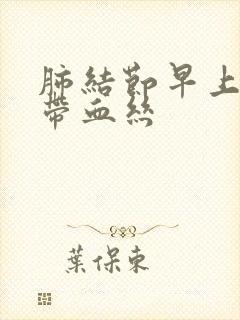 肺結節早上
帶血絲
葉保東